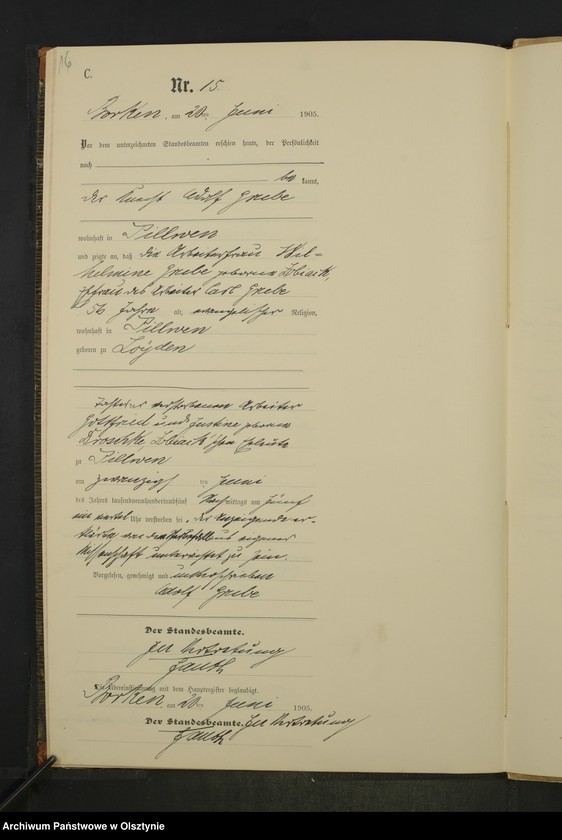 16
C.
Nr. 15.
Borken, am 20ten Juni 1905.
Vor dem unterzeichneten Standesbeamten erschien heute, der Persönlichkeit
nach
be kannt,
der Knecht Adolf Grebe
wohnhaft in Tillwen
und zeigte an, daß die Arbeiterfrau Wil-
helmine Grebe geborene
Ehefrau des Arbeiter Carl Grebe
56 Jahre alt, evangelischer Religion,
wohnhaft in Tillwen
geboren zu Loyden
Tochter der verstorbenen Arbeiter
Gottfried und Justine geborene
Eheleute
zu Tillwen
am zwanzigsten Juni
des Jahres tausendneunhundertfünf Nachmittags um fünf
ein viertel Uhr verstorben sei. Der Anzeigende er-
klärte von dem Sterbefall aus eigener
Wissenschaft unterrichtet zu sein.
Vorgelesen, genehmigt und unterschrieben
Adolf Grebe
Der Standesbeamte.
In Vertretung
Die Übereinstimmung mit dem Hauptregister beglaubigt.
Borken, am 20ten Juni 1905.
Der Standesbeamte. In Vertretung
Archiwum Państwowe w Olsztynie